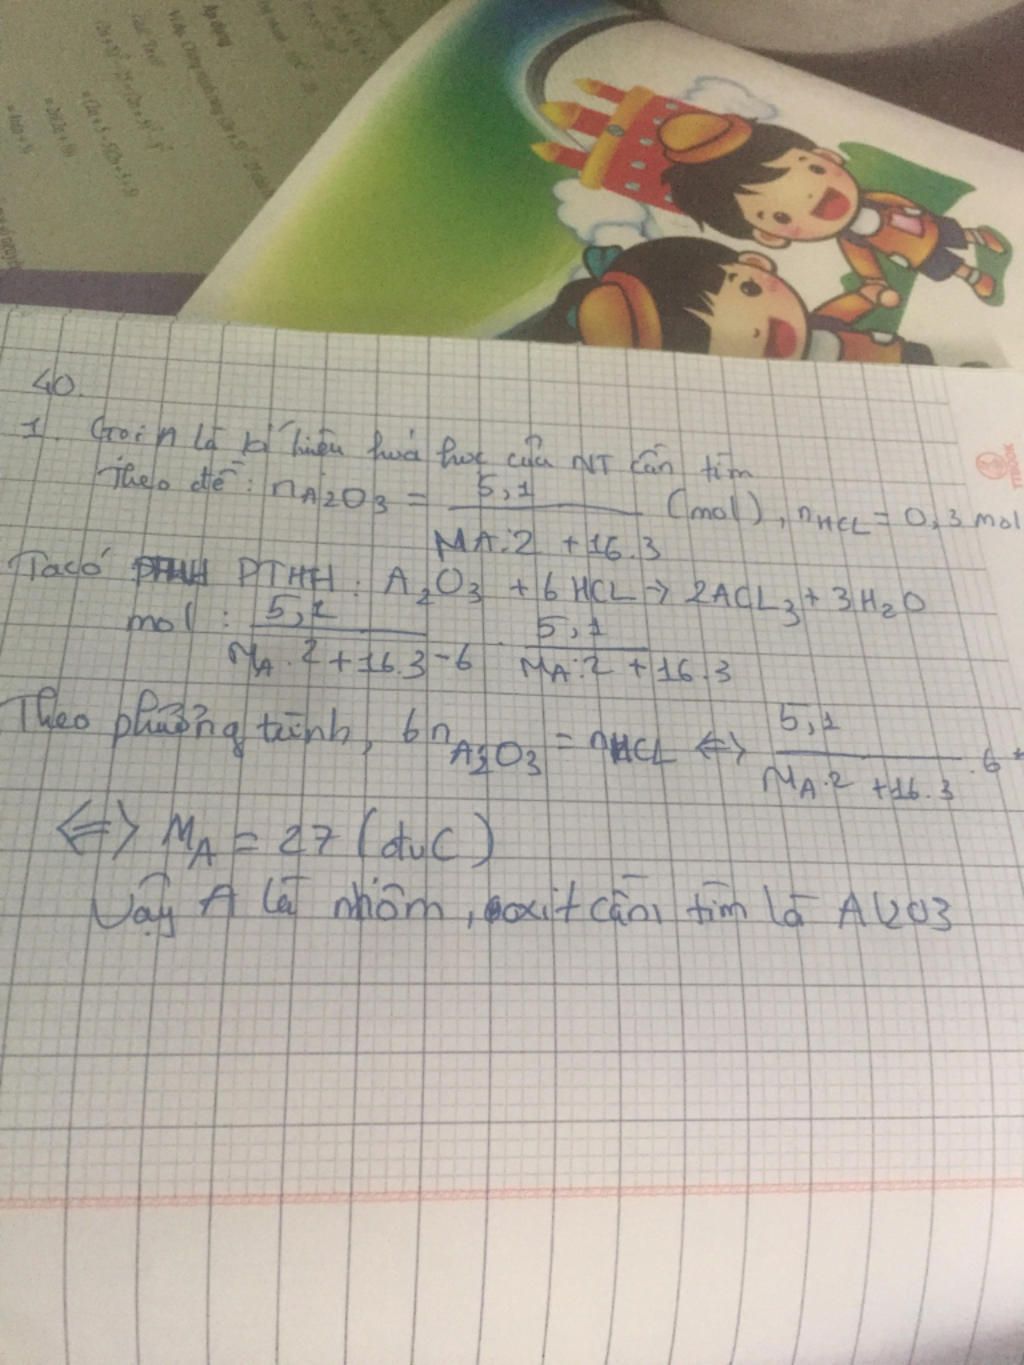 Áp dụng
40.
1. Gọi A là kí hiệu hoá học của NT cần tìm
Theo đề: nA2O3 = 5,1 / MA.2 + 16.3 (mol), nHCL = 0,3 mol
Ta có PTHH: A2O3 + 6HCL → 2ACL3 + 3H2O
mol: 5,1 / MA.2 + 16.3 - 6 . 5,1 / MA.2 + 16.3
Theo phương trình, 6nA2O3 = nHCL <=> 5,1 / MA.2 + 16.3 . 6
<=> MA = 27 (đvC)
Vậy A là nhôm, oxit cần tìm là Al2O3